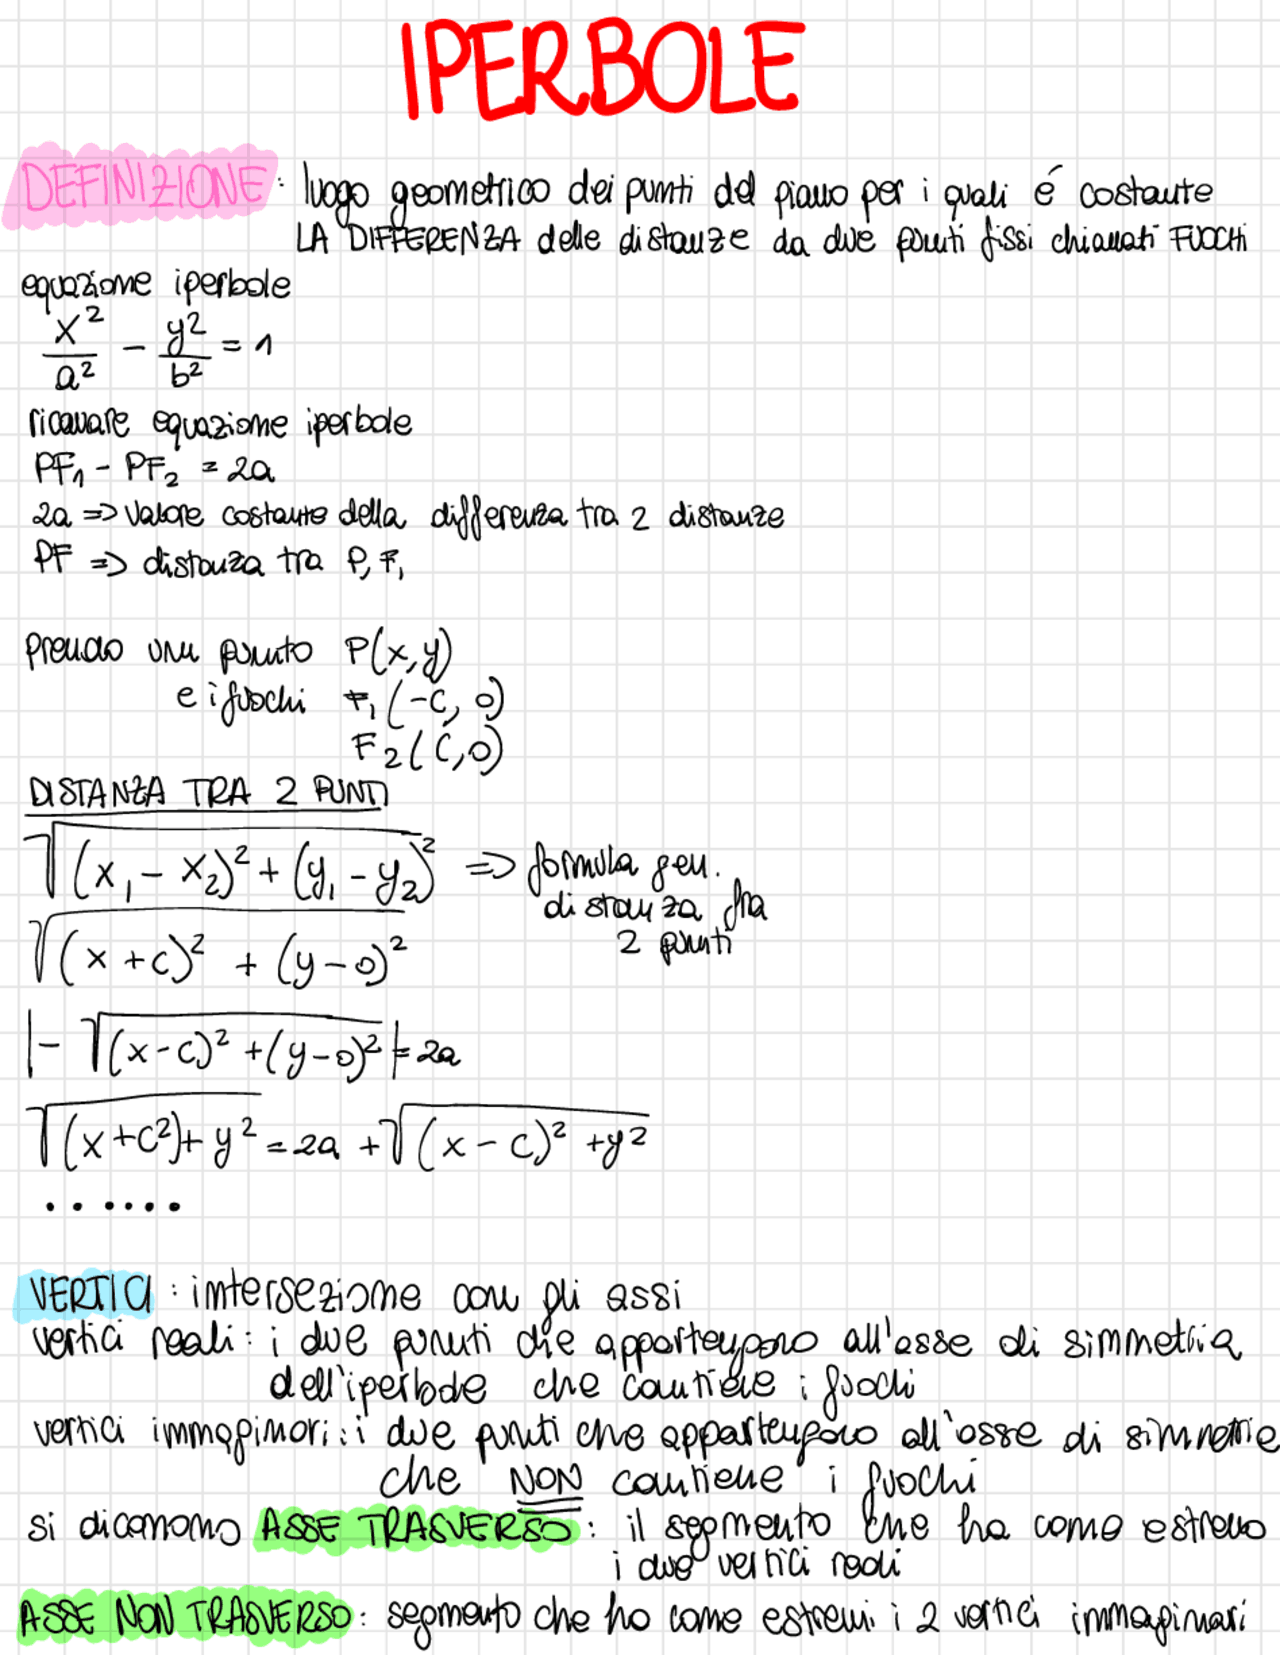 IPERBOLE
DEFINIZIONE: luogo geometrico dei punti del piano per i quali é costante
LA DIFFERENZA delle distanze da due punti fissi chiamati FUOCHI
equazione iperbole
x²/a² - y²/b² = 1
ricavare equazione iperbole
PF₁ - PF₂ = 2a
2a => valore costante della differenza tra 2 distanze
PF => distanza tra P, F₁
prendo un punto P(x,y)
e i fuochi F₁(-c, 0)
F₂(c,0)
DISTANZA TRA 2 PUNTI
√(x₁ - x₂)² + (y₁ - y₂)² => formula gen.
distanza fra
2 punti
√(x + c)² + (y - 0)²
|- √(x - c)² + (y - 0)² | = 2a
√(x + c²) + y² = 2a + √(x - c)² + y²
.......
VERTICI: intersezione con gli assi
vertici reali: i due punti che appartengono all'asse di simmetria
dell'iperbole che contiene i fuochi
vertici immaginari: i due punti che appartengono all'asse di simmetrie
che NON contiene i fuochi
si dicomono ASSE TRASVERSO: il segmento che ha come estremo
i due vertici reali
ASSE NON TRASVERSO: segmento che ho come estremi i 2 vertici immaginari